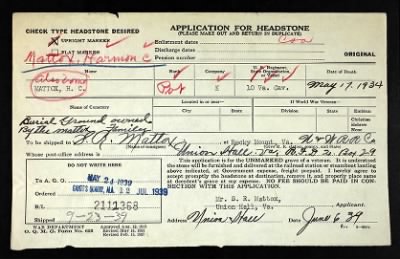 CHECK TYPE HEADSTONE DESIRED
UPRIGHT MARKER
FLAT MARKER
APPLICATION FOR HEADSTONE
(PLEASE MAKE OUT AND RETURN IN DUPLICATE)
Enlistment dates
Discharge dates
Pension number
ORIGINAL
Mattox, Harmon C
Name
Rank
Company
Date of Death
MATTOX, H. C.
Pvt
K
10 Va. Cav.
May 17, 1934
Name of Cemetery
Located in or near—
If World War Veteran—
Burial Ground owned
By the mattox families
To be shipped to
S. R. Mattox
at Rocky Mount, Va.
Whose post-office address is
Union Hall, Va.
DO NOT WRITE HERE
This application is for the UNMARKED grave of a veteran. It is understood the stone will be furnished and delivered at the railroad station or steamboat landing above indicated, at Government expense, freight prepaid. I hereby agree to promptly accept the headstone at destination, remove it, and properly place it at decedent's grave at my expense. NO FEE SHOULD BE PAID IN CONNECTION WITH THIS APPLICATION.
To A. G. O.
MAY 24 1939
JUL 1939
Ordered
2111368
B/L
Shipped
9-23-39
Mr. S. R. Mattox,
Union Hall, Va.
Applicant
WAR DEPARTMENT
O. Q. M. G. Form No. 623
Address
Union Hall
Date
June 6 39